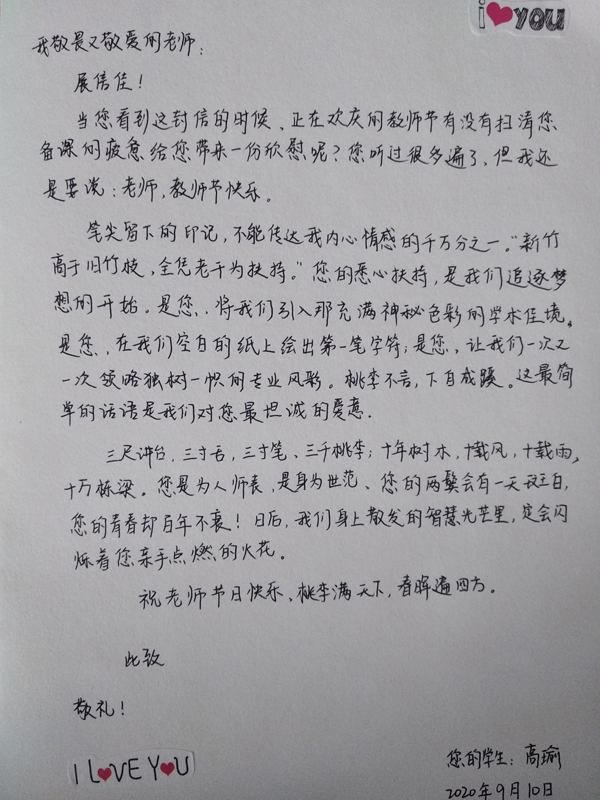 i❤you
我敬畏又敬爱的老师：
展信佳！
当您看到这封信的时候、正在欢庆的教师节有没有扫清您
备课的疲惫给您带来一份欣慰呢？您听过很多遍了，但我还
是要说：老师，教师节快乐。
笔尖留下的印记，不能传达我内心情感的千万分之一。“新竹
高于旧竹枝，全凭老干为扶持。”您的悉心扶持，是我们追逐梦
想的开始。是您、将我们引入那充满神秘色彩的学术佳境。
是您、在我们空白的纸上绘出第一笔字符；是您、让我们一次又
一次领略独树一帜的专业风彩。桃李不言，下自成蹊。这最简
单的话语是我们对您最坦诚的爱意.
三尺讲台，三寸舌，三寸笔、三千桃李；十年树木，十载风，十载雨，
十万栋梁。您是为人师表，是身为世范、您的两鬓会有一天斑白，
您的青春却百年不衰！日后，我们身上散发的智慧光芒里，定会闪
烁着您亲手点燃的火花。
祝老师节日快乐、桃李满天下，春晖遍四方。
此致
敬礼！
I L❤VE Y❤U
您的学生：高瑜
2020年9月10日